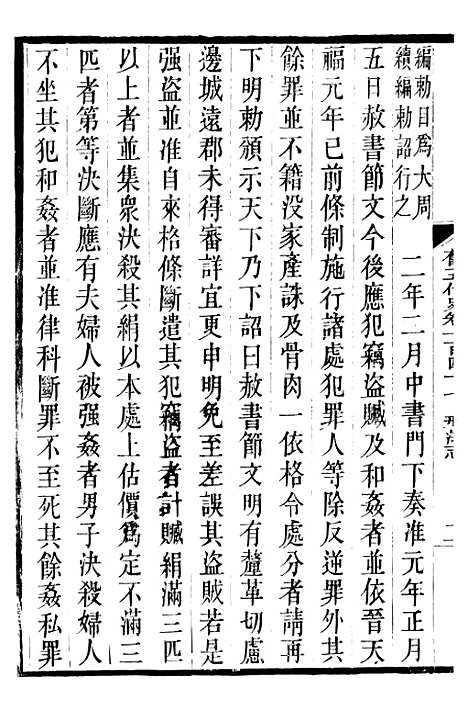 編勅目爲大周
續編勅詔行之
二年二月中書門下奏准元年正月
五日赦書節文今後應犯竊盜贓及和姦者並依晉天
福元年已前條制施行諸處犯罪人等除反逆罪外其
餘罪並不籍没家產誅及骨肉一依格令處分者請再
下明勅頒示天下乃下詔曰赦書節文明有釐革切慮
邊城遠郡未得審詳宜更申明免至差誤其盜賊若是
强盜並准自來格條斷遣其犯竊盜者計贓絹滿三匹
以上者並集衆決殺其絹以本處上估價爲定不滿三
匹者第等決斷應有夫婦人被强姦者男子決殺婦人
不坐其犯和姦者並准律科斷罪不至死其餘姦私罪
舊五代史卷一百四十七 刑法志
二